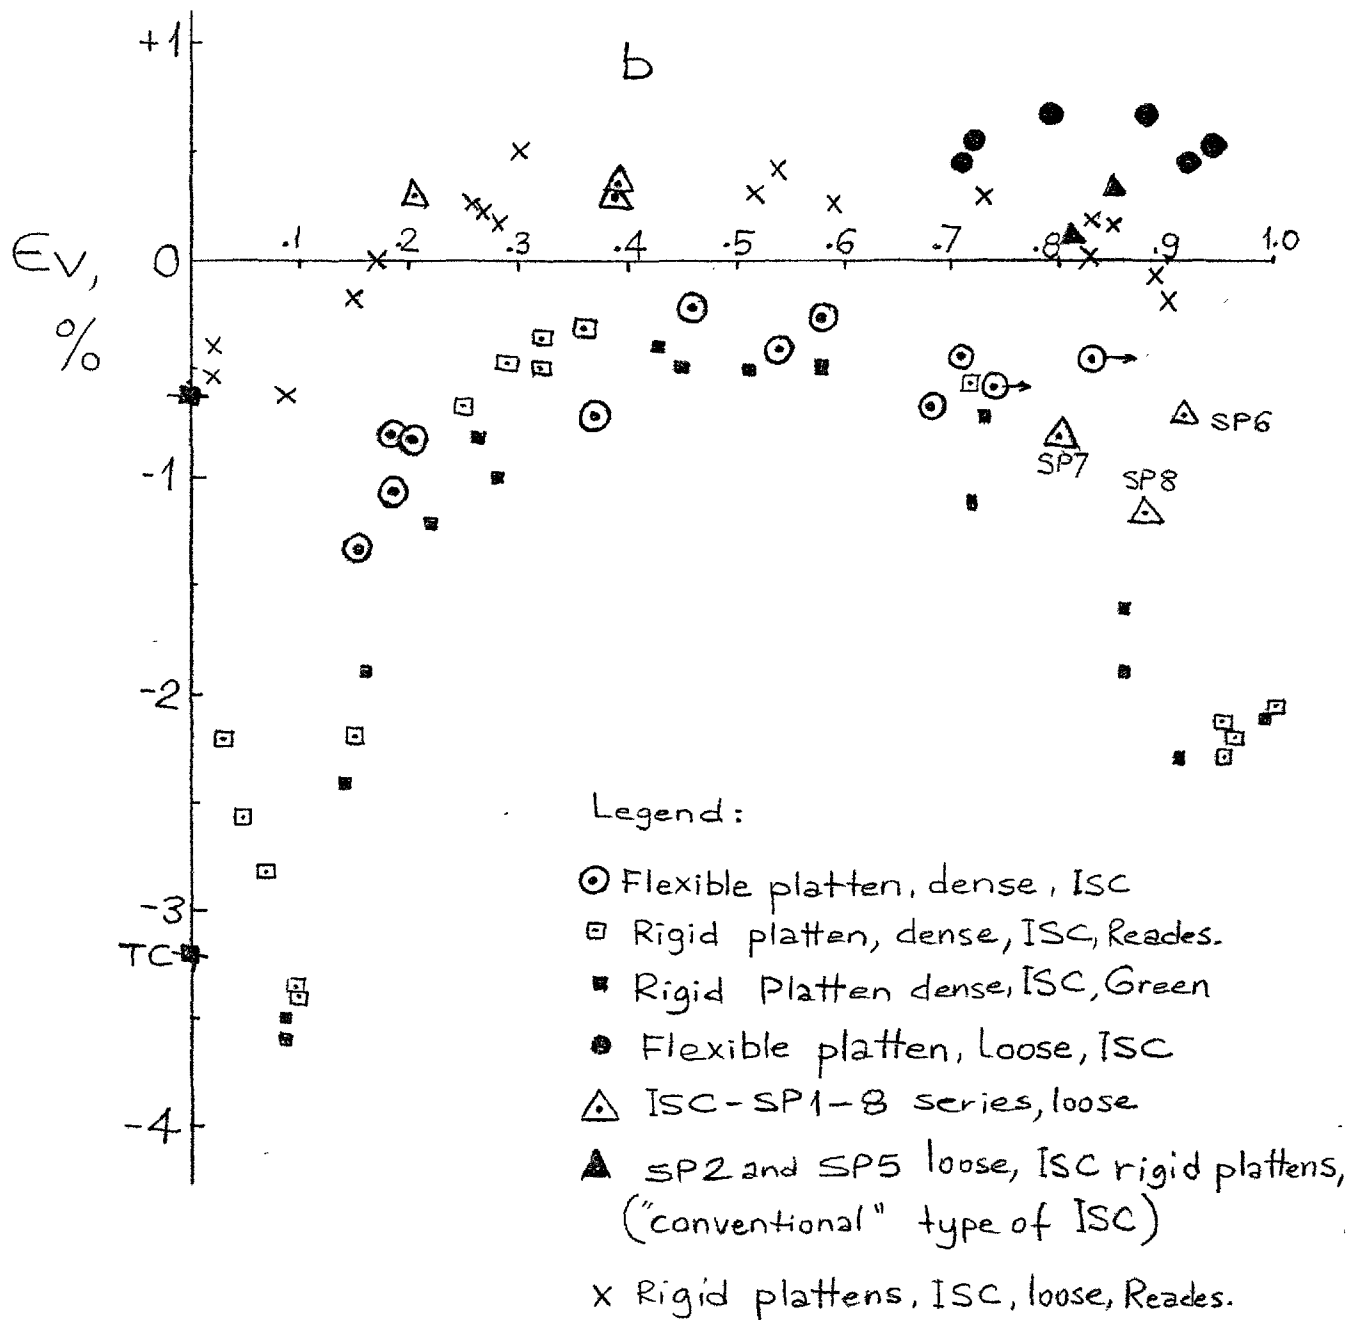 +1
b
Ev, 0 .1 .2 .3 .4 .5 .6 .7 .8 .9 1.0
%
SP6
SP7
-1
SP8
-2
Legend:
Flexible platten, dense, ISC
-3
Rigid platten, dense, ISC, Reades.
TC
Rigid Platten dense, ISC, Green
Flexible platten, Loose, ISC
ISC-SP1-8 series, loose
-4
SP2 and SP5 loose, ISC rigid plattens,
("conventional" type of ISC)
Rigid plattens, ISC, loose, Reades.